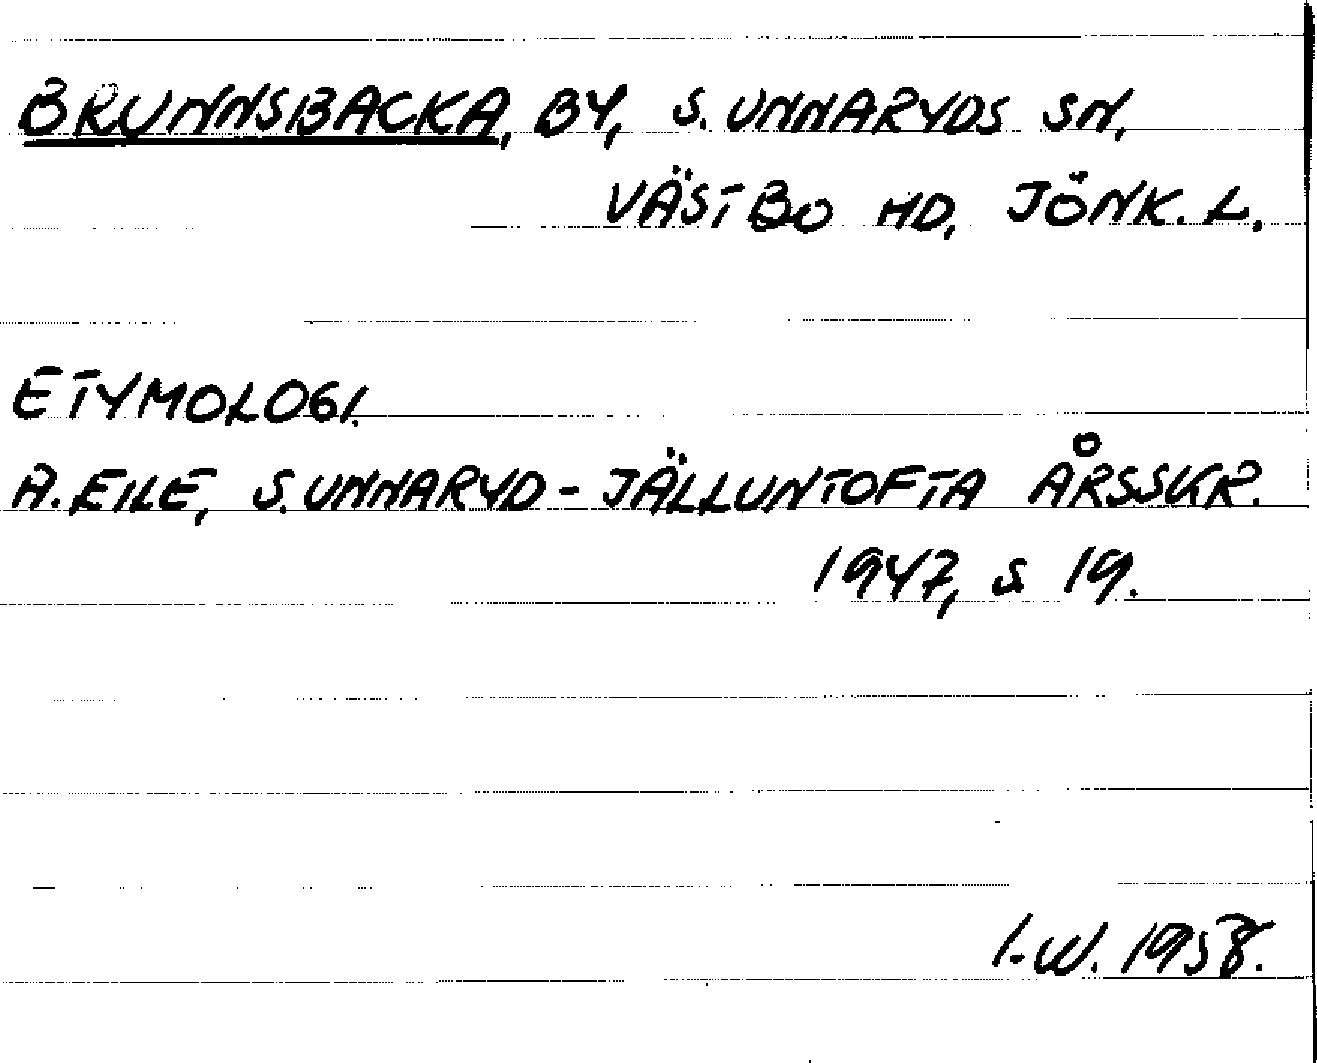 BRUNNSBACKA, BY, S. UNNARYDS SN.
VÄSTBO HD, JÖNK. L.
ETYMOLOGI.
A. EILE, S. UNNARYD - JÄLLUNTOFTA ÅRSSKR.
1947, S 19.
I-W. 1958.